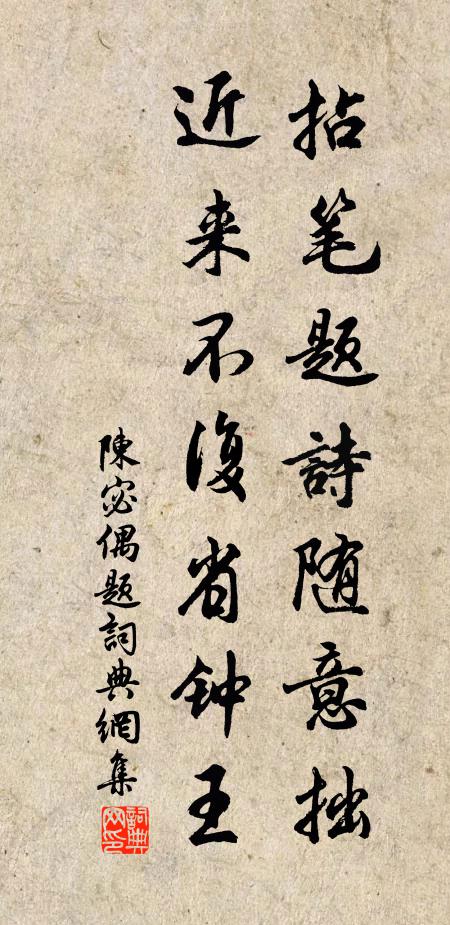 拈笔题詩随意拙
近来不復省钟王
陳宓偶题詞典網集
詞典網印